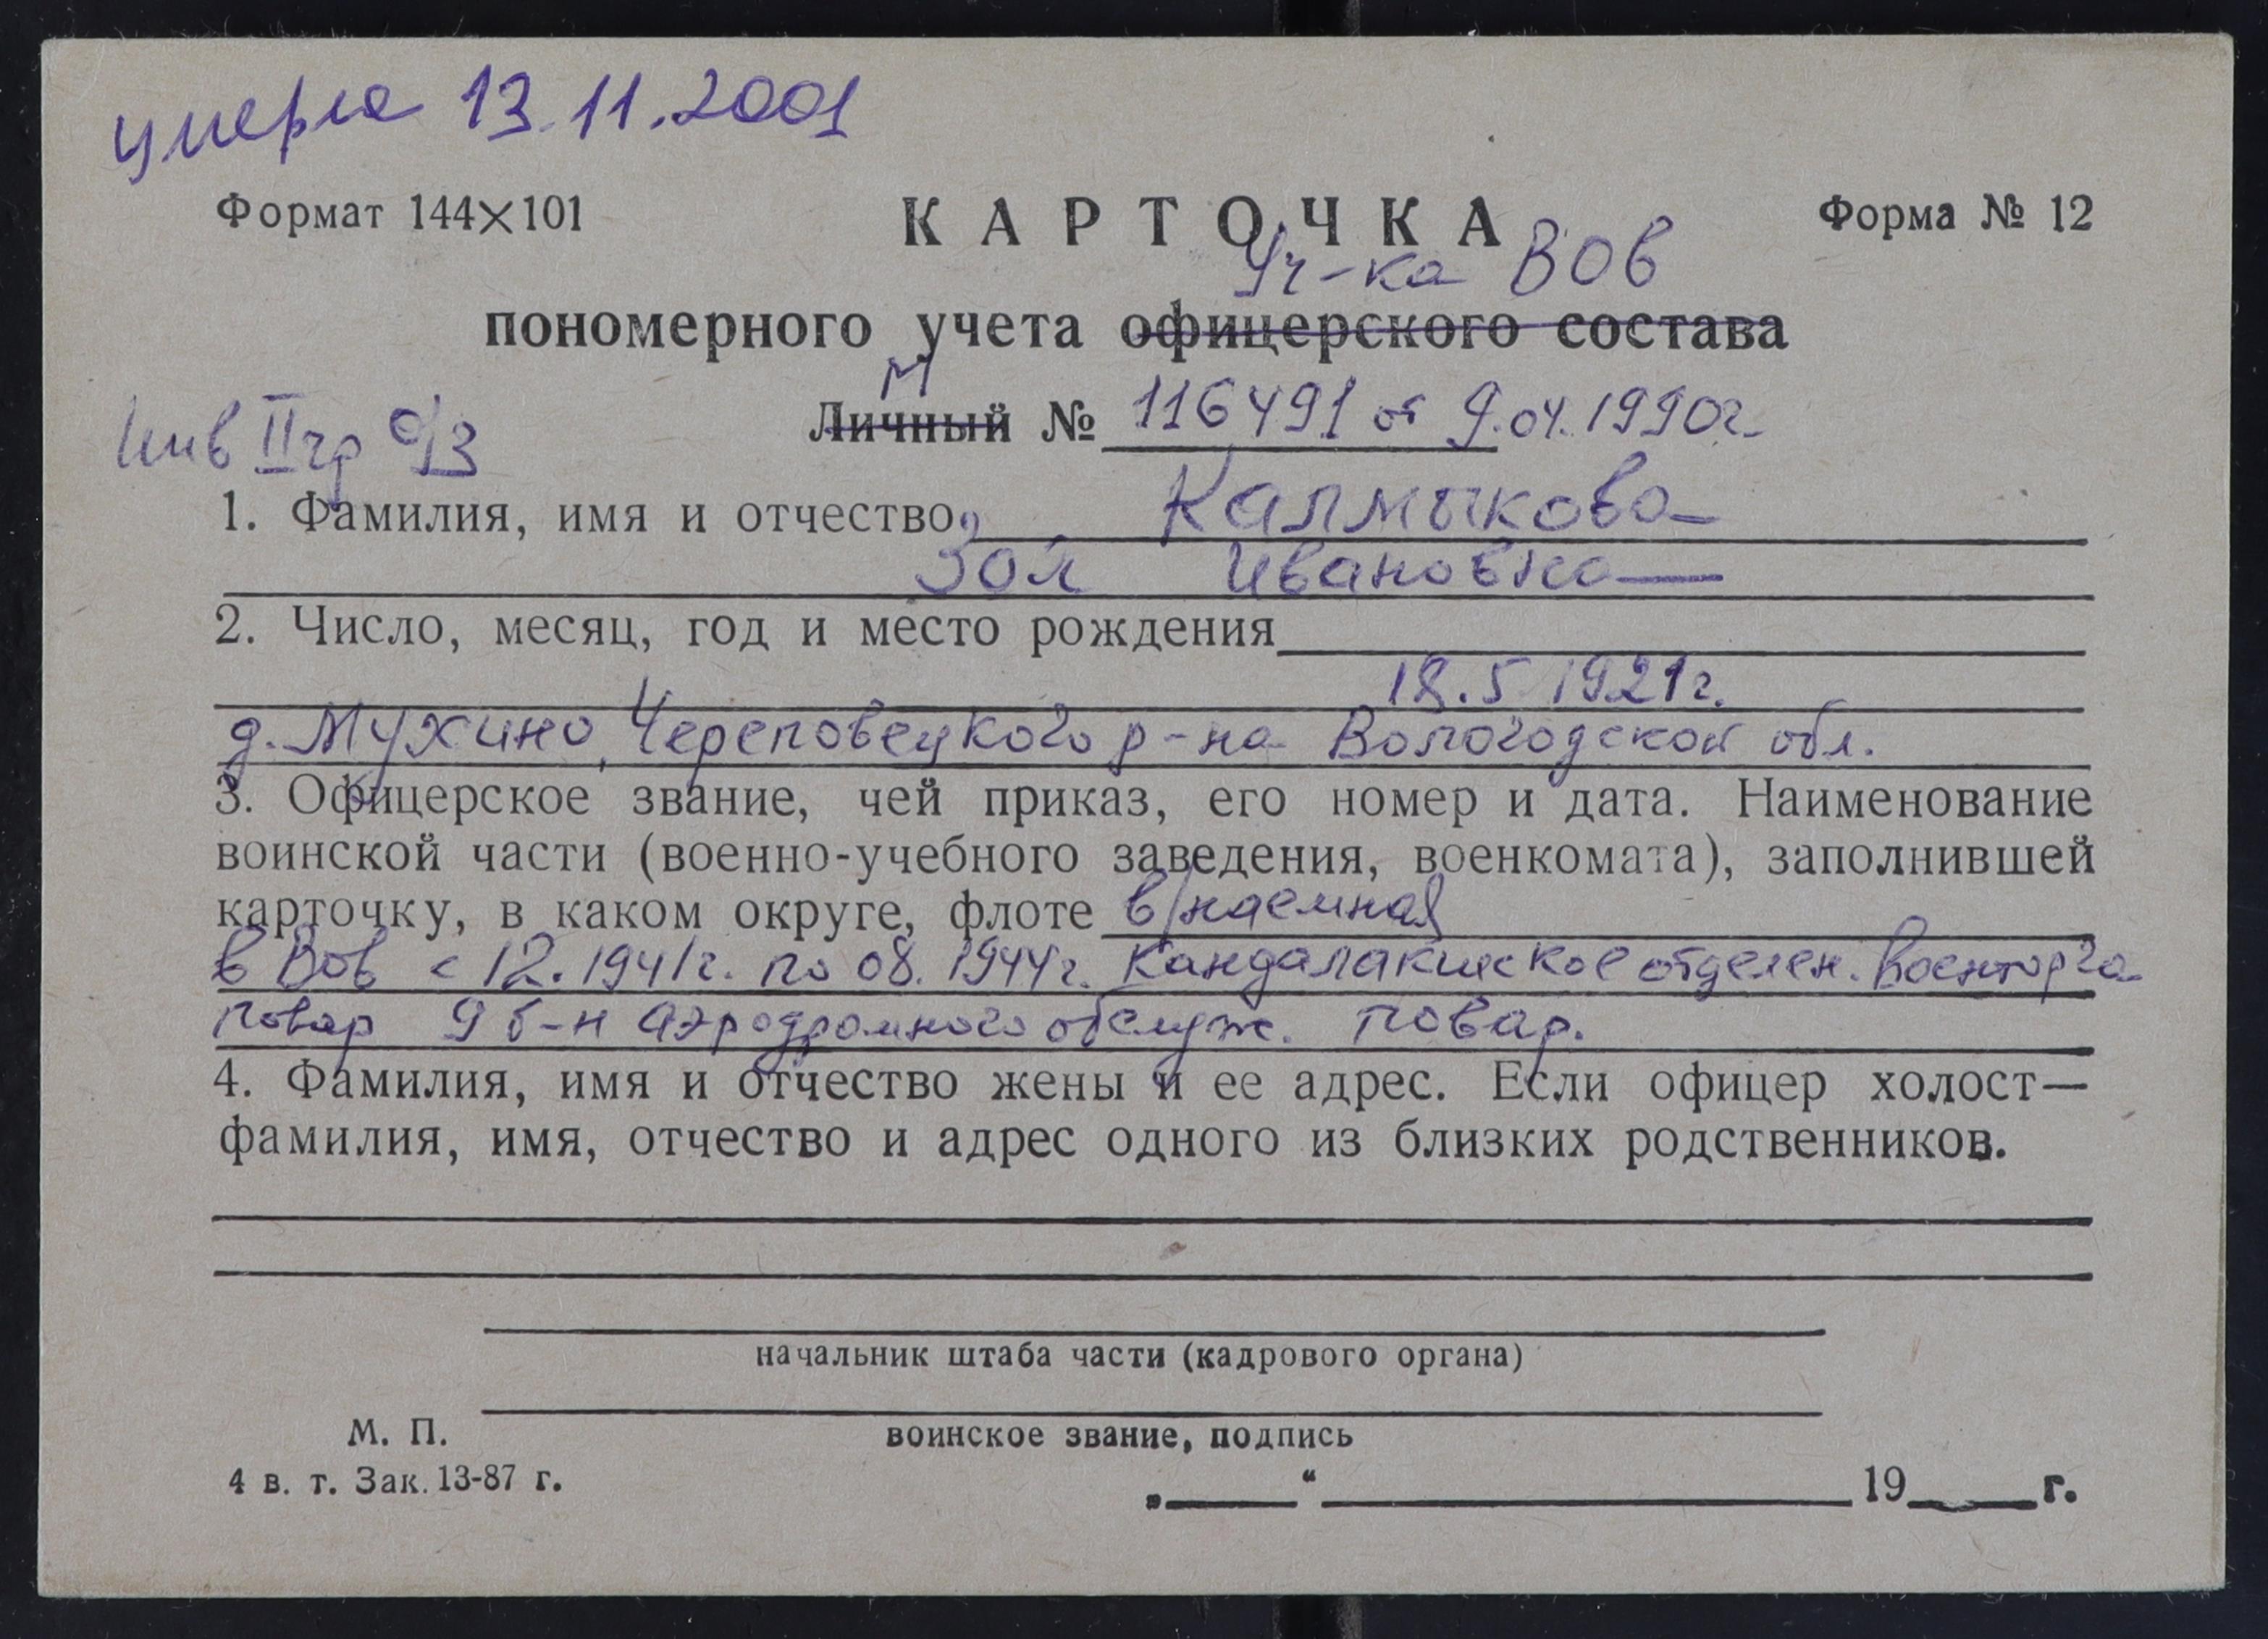 умерла 13.11.2001
Формат 144×101
КАРТОЧКА
Форма № 12
Уч-ка ВОВ
пономерного учета офицерского состава
Инв II гр о/з
М
Личный № 116491 от 9.04.1990г.
1. Фамилия, имя и отчество Калмыкова
Зоя Ивановна
2. Число, месяц, год и место рождения
18.5 1921г.
д. Мухино, Череповецкого р-на Вологодской обл.
3. Офицерское звание, чей приказ, его номер и дата. Наименование
воинской части (военно-учебного заведения, военкомата), заполнившей
карточку, в каком округе, флоте в/наемная
в Вов с 12.1941г. по 08.1944г. Кандалакшское отделен. Военторга
повар 9 б-н аэродромного обслуж. повар.
4. Фамилия, имя и отчество жены и ее адрес. Если офицер холост—
фамилия, имя, отчество и адрес одного из близких родственников.
начальник штаба части (кадрового органа)
М. П.
воинское звание, подпись
4 в. т. Зак. 13-87 г.
„ “ 19 г.